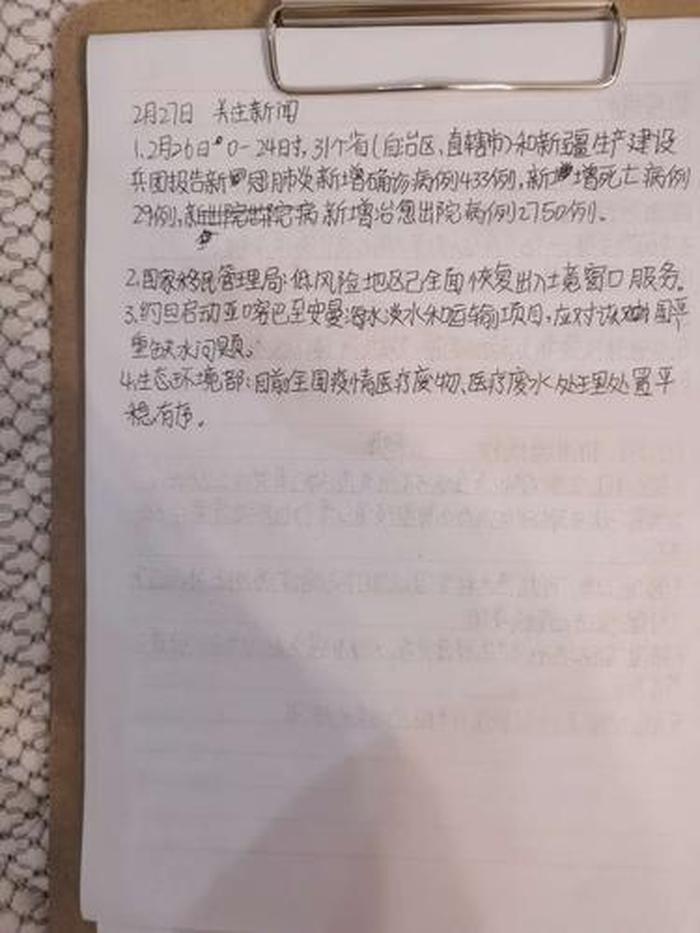 2月27日 关注新闻
1.2月26日0-24时,31个省(自治区、直辖市)和新疆生产建设
兵团报告新冠肺炎新增确诊病例433例,新增死亡病例
29例,新增治愈出院病例2750例。
2.国家移民管理局:低风险地区已全面恢复出入境窗口服务。
3.约旦启动亚喀巴至安曼海水淡水和运输项目,应对该国严
重缺水问题。
4.生态环境部:目前全国疫情医疗废物、医疗废水处理处置平
稳有序。